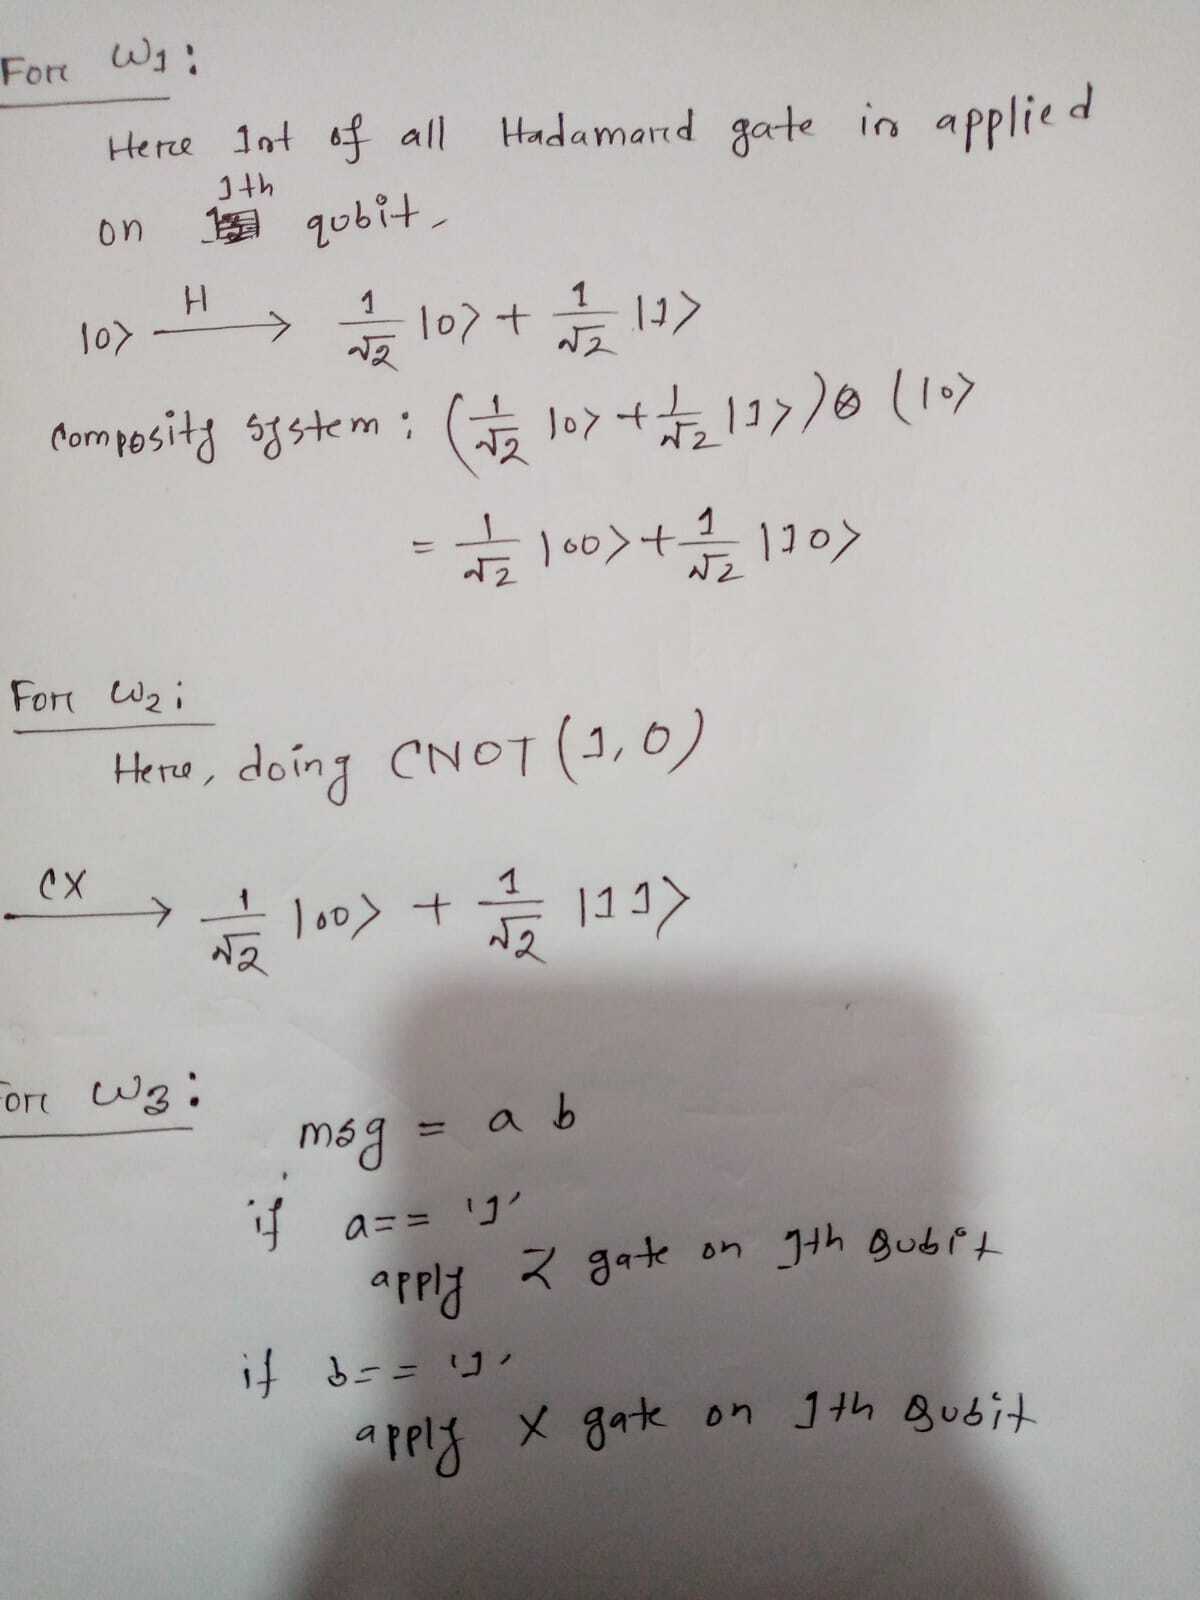 For W1:
Here 1st of all Hadamard gate is applied
1th
on qubit.
|0> H→ 1/√2 |0> + 1/√2 |1>
composity system: (1/√2 |0> + 1/√2 |1>) ⊗ (|0>
= 1/√2 |00> + 1/√2 |10>
For W2:
Here, doing CNOT (1,0)
CX→ 1/√2 |00> + 1/√2 |11>
For W3:
msg = a b
if a== '1'
apply Z gate on 1th Qubit
if b== '1'
apply X gate on 1th Qubit